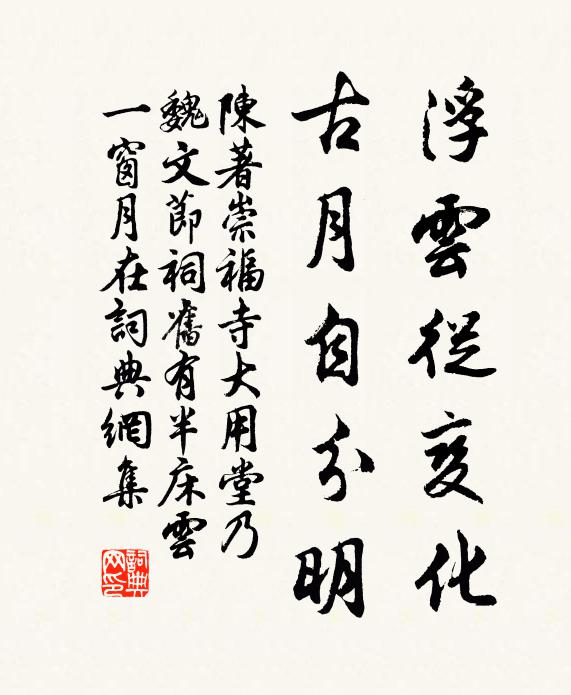 浮雲從變化
古月自分明
陳著崇福寺大用堂乃
魏文節祠舊有半床雲
一窗月在詞典網集
詞典網印